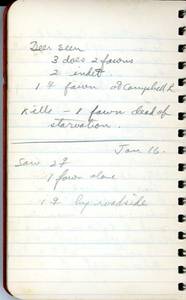 Deer seen
3 does 2 fawns
2 indet
1 ♀ fawn @ Campbell L
Kills – 1 fawn dead of
starvation.
Jan 16.
Saw 2 ♀
1 fawn alone
1 ♀ by roadside